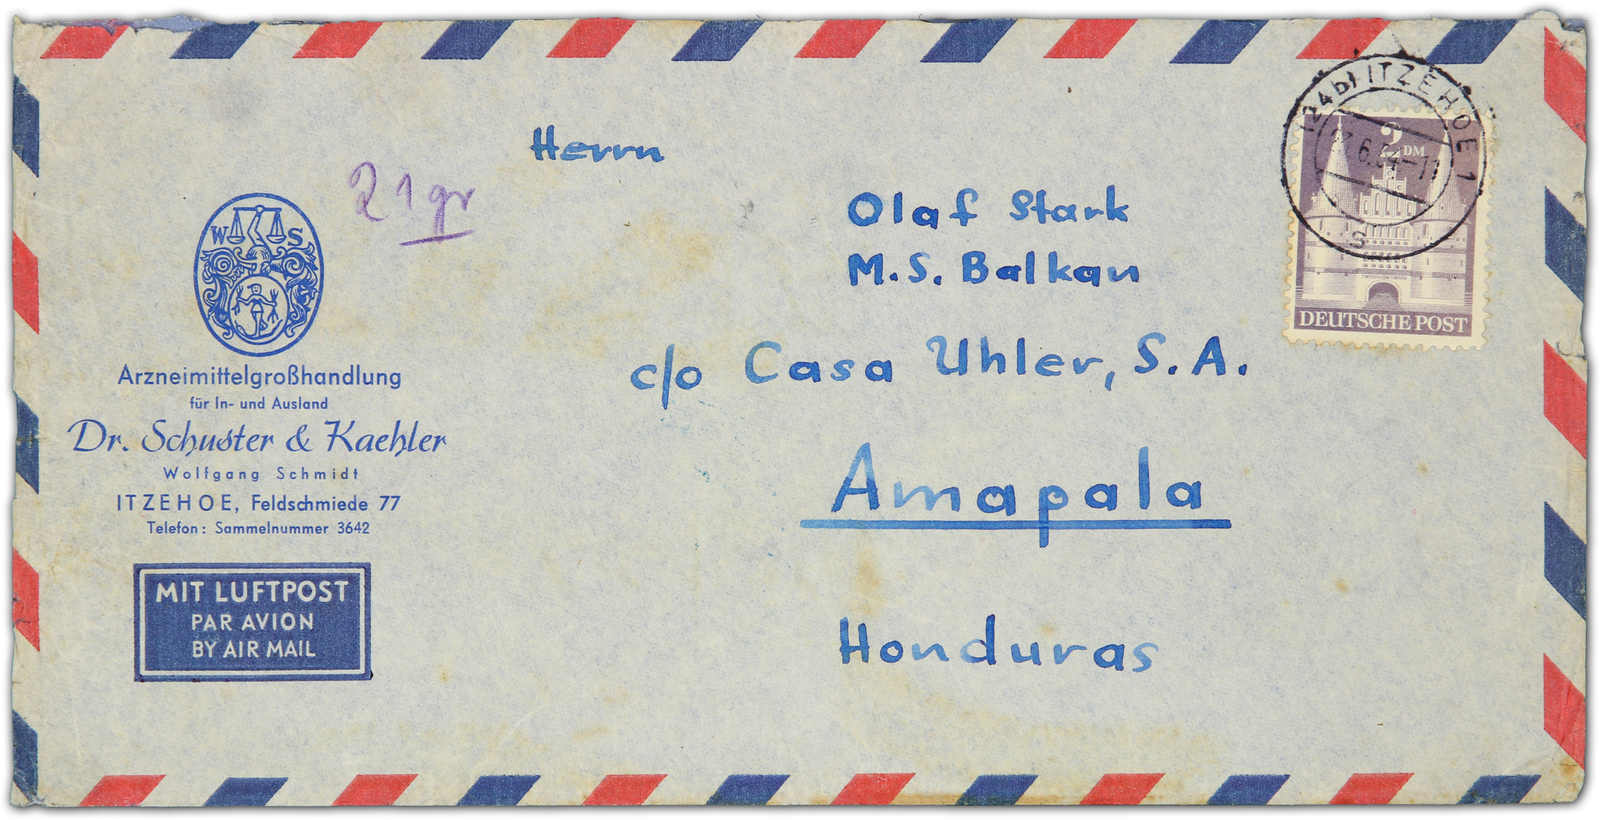 W S
Arzneimittelgroßhandlung
für In- und Ausland
Dr. Schuster & Kaehler
Wolfgang Schmidt
ITZEHOE, Feldschmiede 77
Telefon: Sammelnummer 3642
MIT LUFTPOST
PAR AVION
BY AIR MAIL
21gr
Herrn
Olaf Stark
M.S. Balkan
c/o Casa Uhler, S.A.
Amapala
Honduras
(24b) ITZEHOE 1
6.54-11
s
2 DM.
DEUTSCHE POST